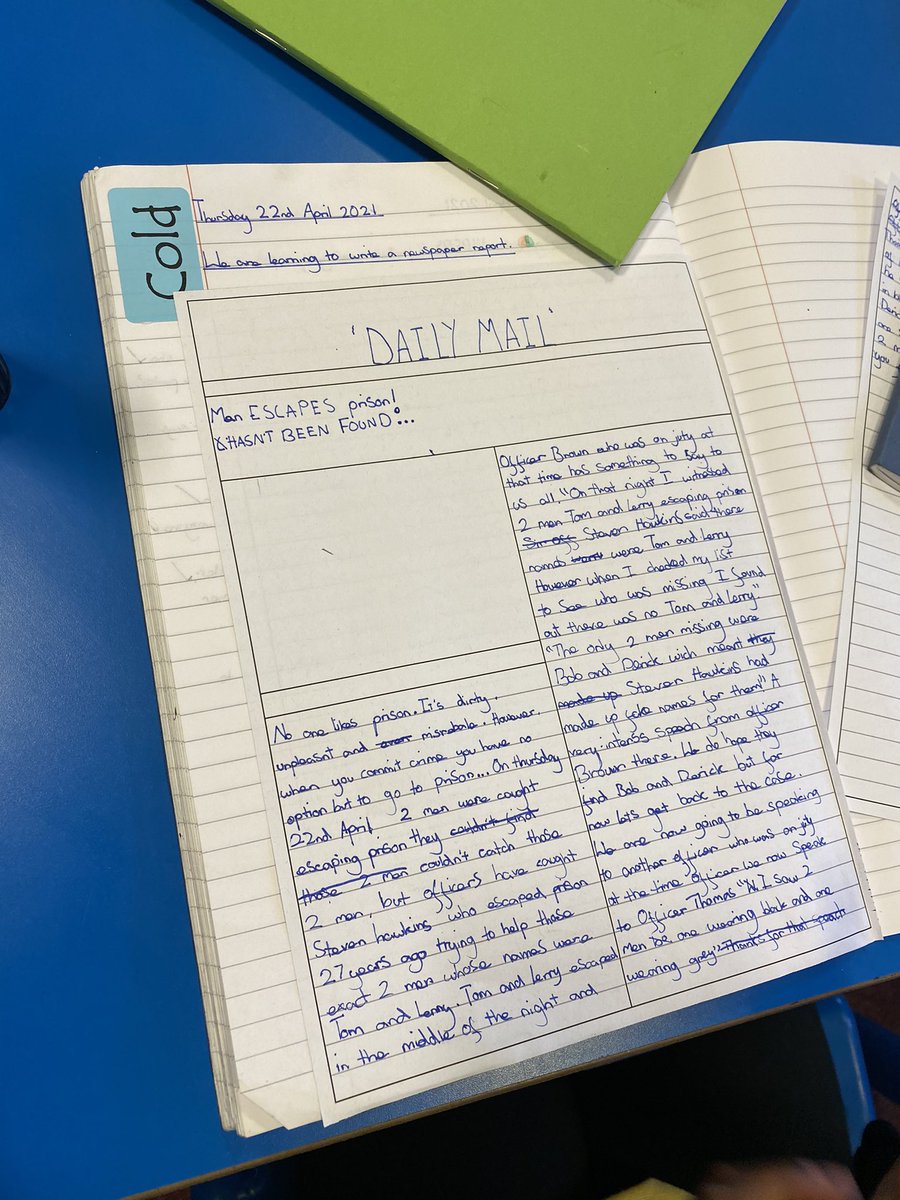 Cold
Thursday 22nd April 2021
We are learning to write a newspaper report.
'DAILY MAIL'
Man ESCAPES prison!
& HASNT BEEN FOUND!...
No one likes prison. It's dirty,
unpleasnt and misrebale. However
when you commit crime you have no
option but to go to prison... On thursday
22nd April 2 men were caught
escaping prison they couldn't find
those 2 men couldn't catch those
2 men, but officers have caught
Steven hawkins who escaped prison
27 years ago trying to help those
exact 2 men whose names were
Tom and Lerry. Tom and Lerry escaped
in the middle of the night and
Officer Brown who was on juty at
that time has something to Say to
us all. "On that night I witnessed
2 men Tom and Lerry escaping prison
Steven Hawkins said there
names were Tom and Lerry
However when I checked my list
to See who was missing I found
out there was no Tom and Lerry."
"The only 2 men missing were
Bob and Derick wich meant they
made up Steven Hawkins had
made up joke names for them!" A
very intenss speech from officer
Brown there. We do hope they
find Bob and Derick but for
now lets get back to the case.
We are now going to be speaking
to another officer who was on juty
at the time officer we now Speak
to Officer Thomas "W I saw 2
men be one wearing black and one
wearing grey" Thanks for that speech